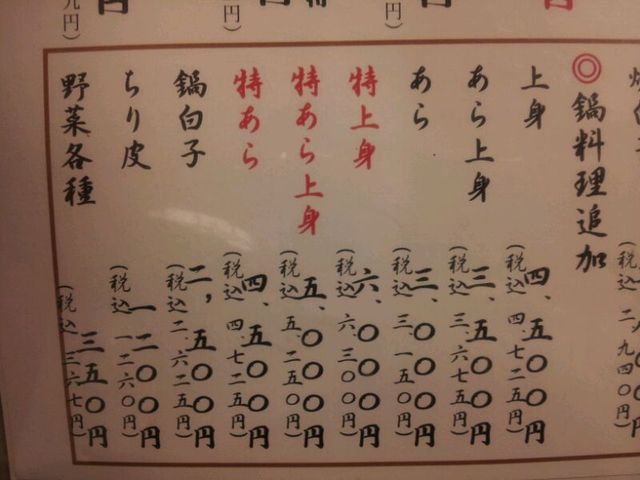 ◎鍋料理追加
上身 四、五〇〇円
(税込 四、七二五円)
あら上身 三、五〇〇円
(税込 三、六七五円)
あら 三、〇〇〇円
(税込 三、一五〇円)
特上身 六、〇〇〇円
(税込 六、三〇〇円)
特あら上身 五、〇〇〇円
(税込 五、二五〇円)
特あら 四、五〇〇円
(税込 四、七二五円)
鍋白子 二、五〇〇円
(税込 二、六二五円)
ちり皮 一二〇〇円
(税込 一二六〇円)
野菜各種 三五〇円
(税込 三六七円)